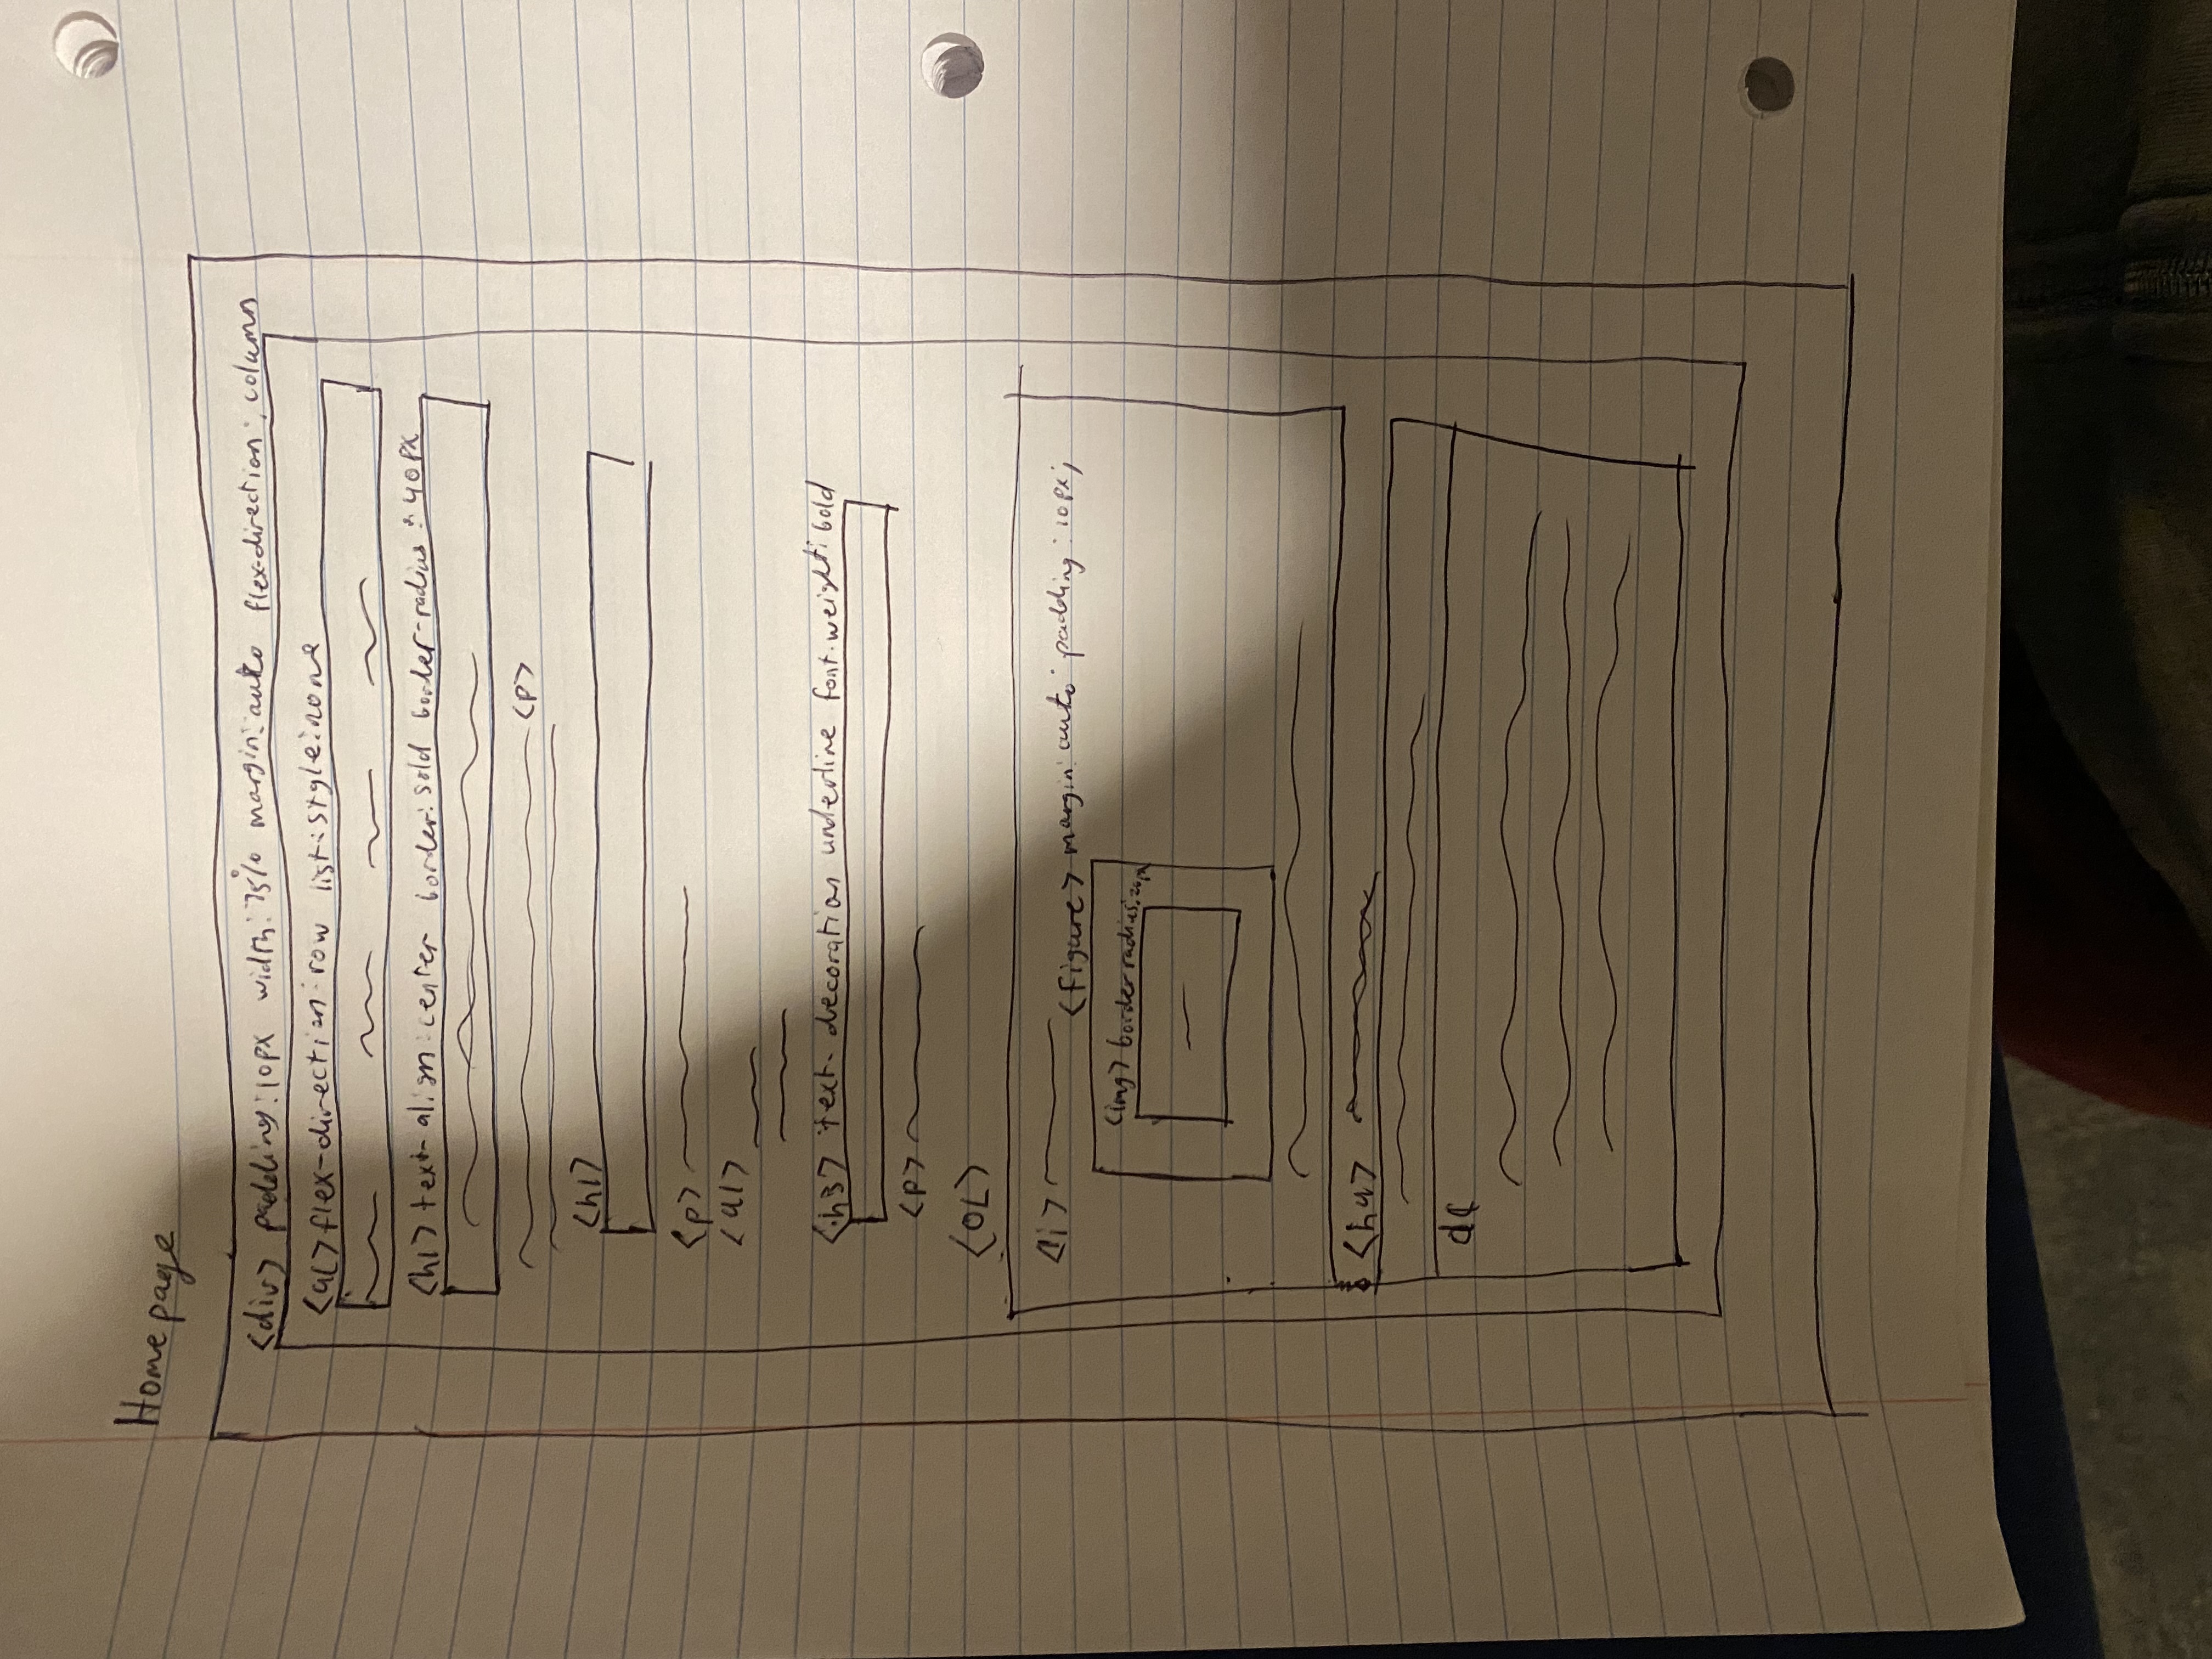 Homepage
<div> padding:10px width:75% margin:auto flex-direction: column
<ul> flex-direction: row list-style:none
<h1> text-align:center border:sold border-radius: 40px
<p>
<h1>
<p>
<ul>
<h3> text-decoration underline font-weight:bold
<p>
<OL>
<li>
<figure> margin:auto padding:10px;
<img> border radius:20px
<h4>